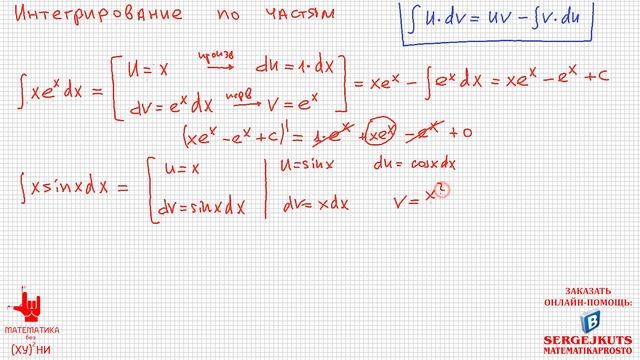 Интегрирование по частям
∫u·dv = uv − ∫v·du
∫xeˣdx = [u = x произв → du = 1·dx
dv = eˣdx перв → v = eˣ] = xeˣ − ∫eˣdx = xeˣ − eˣ + c
(xeˣ − eˣ + c)' = 1·eˣ + xeˣ − eˣ + 0
∫x sinx dx = [u = x | u = sinx du = cosxdx
dv = sinxdx | dv = xdx v = x²
МАТЕМАТИКА
без
(ХУ)²НИ
ЗАКАЗАТЬ
ОНЛАЙН-ПОМОЩЬ:
B
SERGEJKUTS
MATEMATIKAPROSTO